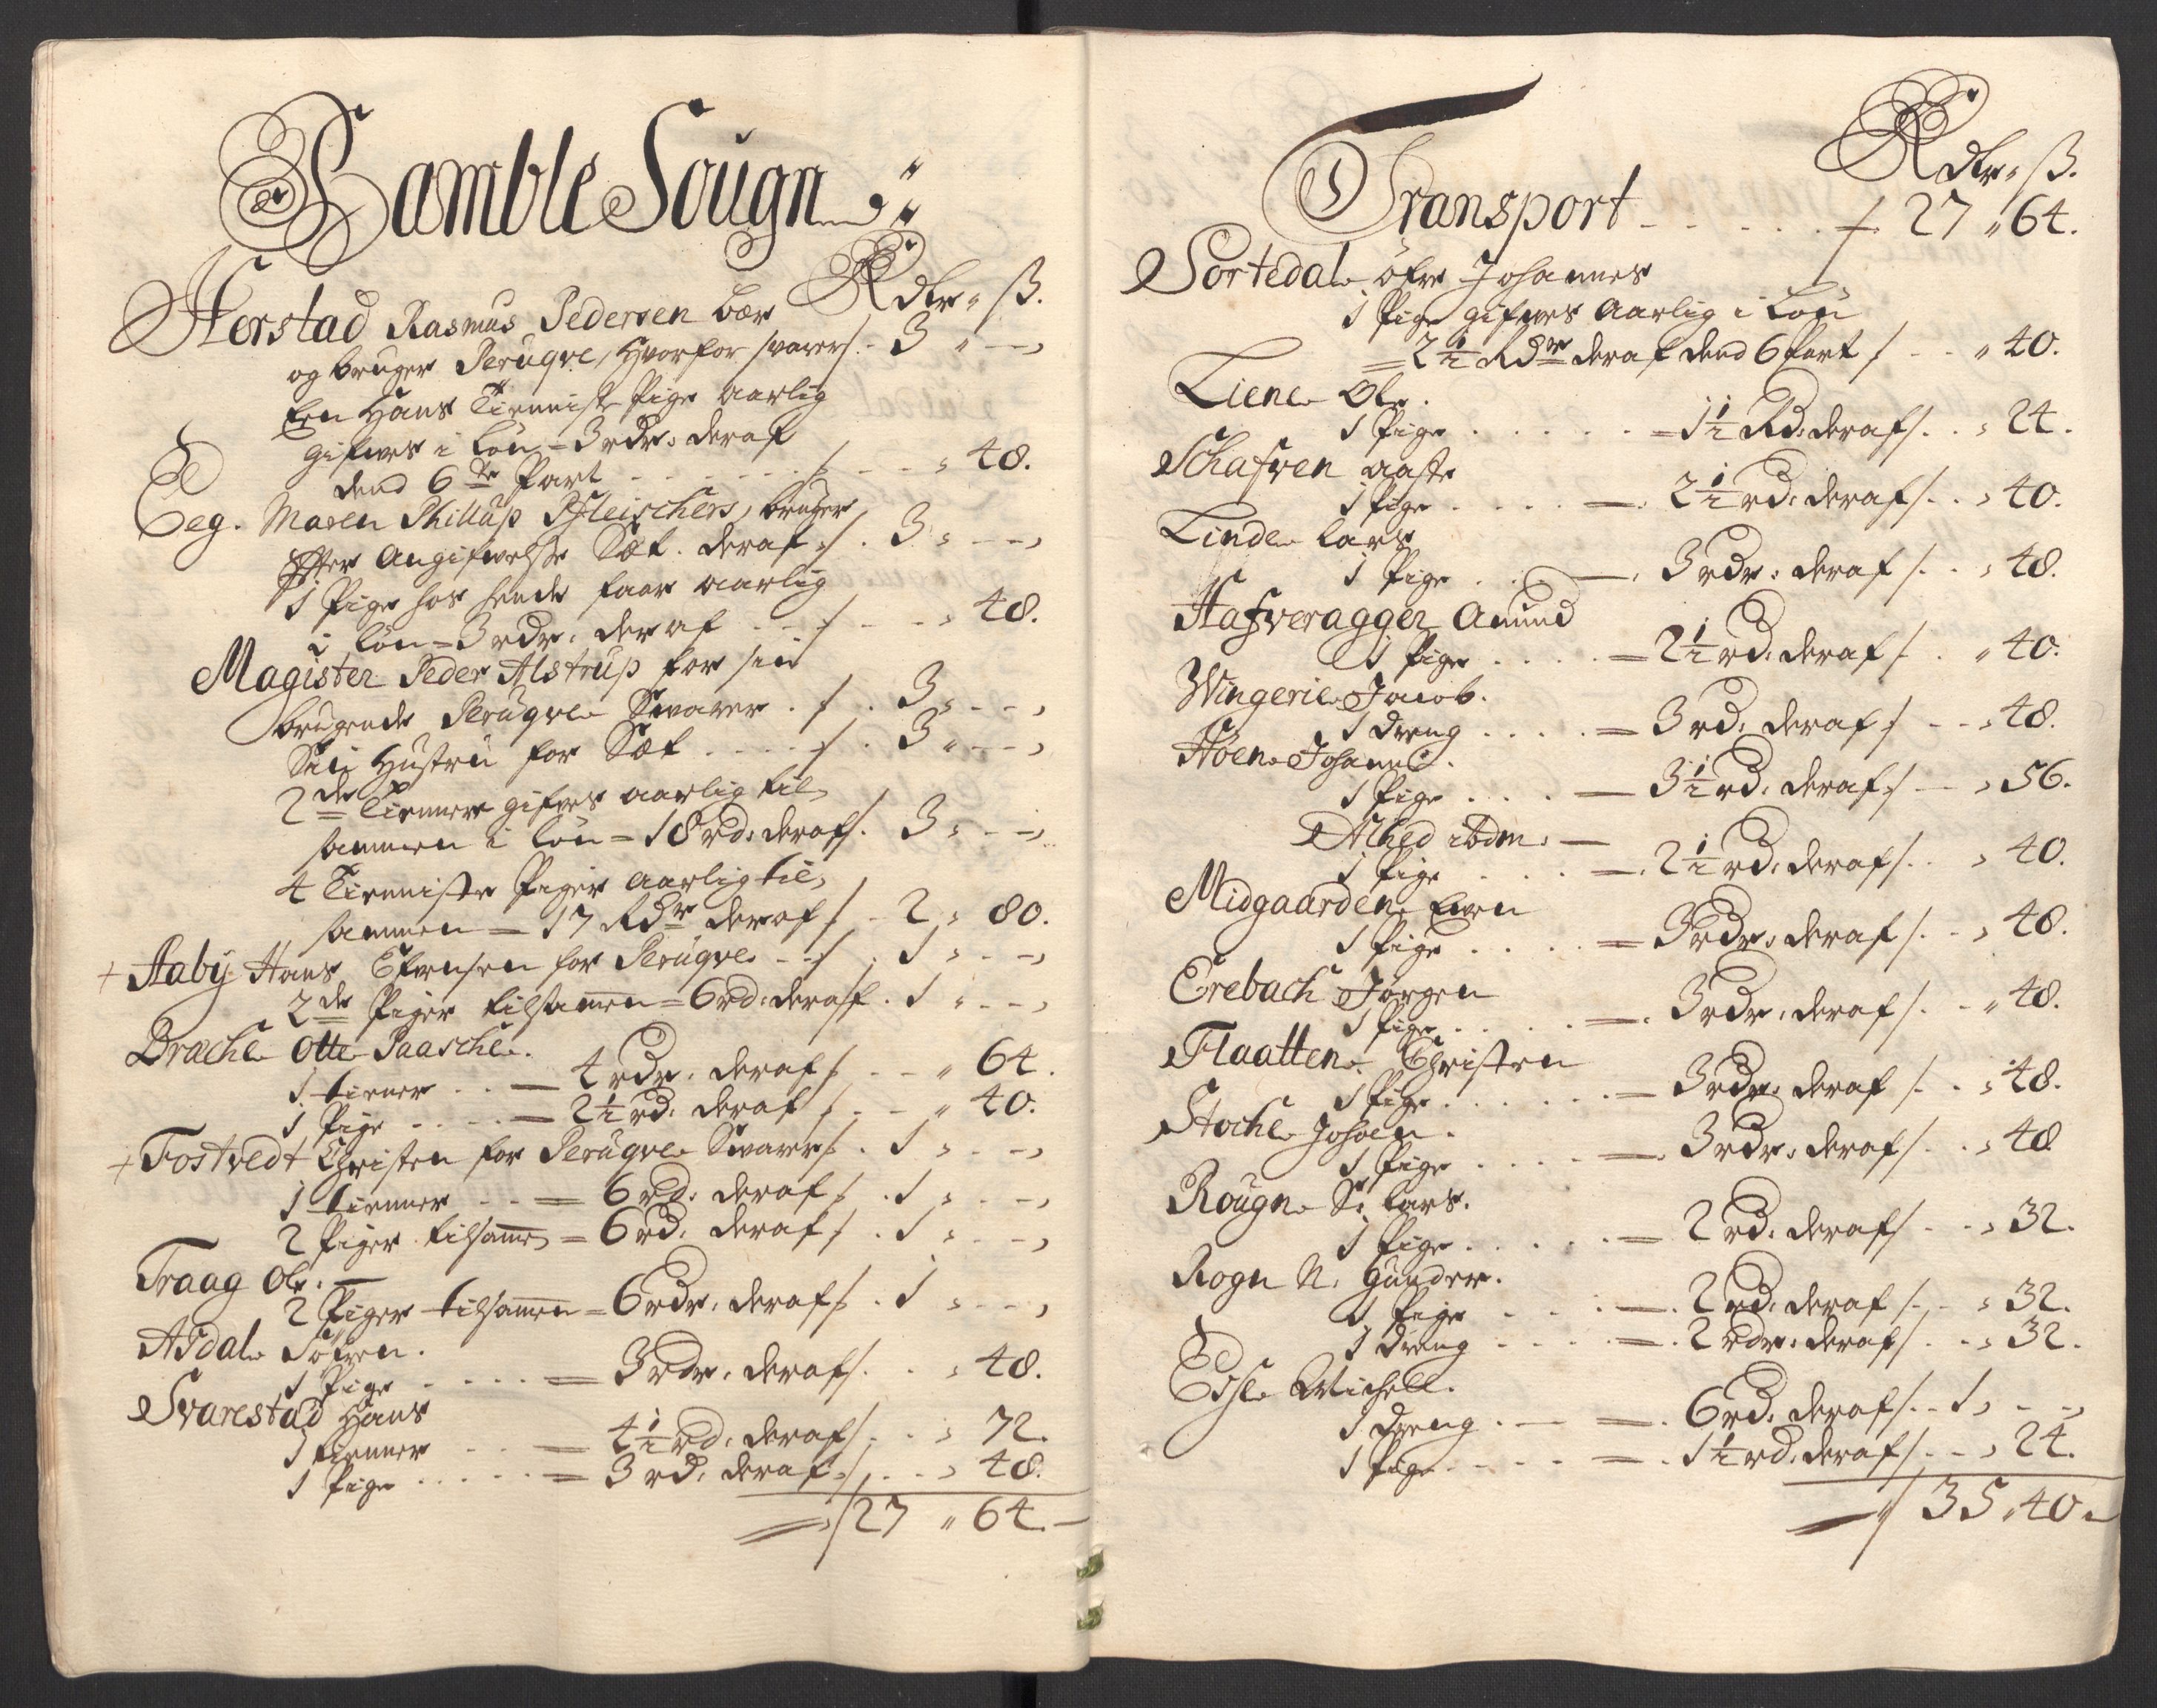 Bamble Sougn
Rdlr " ß.
Herstad Rasmus Pedersen bær
og bruger Peruqve, hvorfor svarer/. - 3 " - -,
Een Hans Tienniste Pige aarlig
gifves i Løn = 3 rdr: deraf
dend 6te Part . . . . . . /. - - , 48.
Eeg. Maren Phillup Pfleischers, bruger
effter Angifvelse Sæt. deraf /. 3 , - -,
1 Pige hos hende faar aarlig
i Løn = 3 rdr, deraf . . /. - - , 48.
Magister Peder Alstrup for sin
brugende Peruqve Svarer . /. 3 , - -,
Sin Hustru for Sæt . . . . /. 3 " - -,
2de Tiennere gifves aarlig til-
sammen i Løn = 18 rd: deraf /. 3 , - -,
4 Tienniste Piger aarlig til-
sammen = 17 Rdr deraf /. 2 , 80.
+ Aaby Hans Efvensen for Peruqve - - /. 1 , - -,
2de Piger tilsamen = 6 rd: deraf . 1 , - -,
Drachle Otte Paasche.
1 tiener . . = 4 rdr, deraf /. - - " 64.
1 Pige . . . . = 2½ rd: deraf /. - - " 40.
+ Fostvedt Christen for Peruqve Svarer /. 1 , - -,
1 tienner . . = 6 rd: deraf /. 1 , - -,
2 Piger tilsamen = 6 rd: deraf /. 1 , - -,
Traag Ole.
2 Piger tilsamen = 6 rdr, deraf /. 1 , - -,
Asdal Søfren.
1 Pige . . . . = 3 rdr, deraf /. . , 48.
Svarestad Hans
1 tienner . . = 4½ rd, deraf /. . , 72.
1 Pige . . . . = 3 rd, deraf /. . . , 48.
= /. 27 " 64. -
Rdlr " ß.
Transport - - . . . /. 27 " 64.
Sortedal øfre Johannes
1 Pige gifves aarlig i Løn
= 2½ Rdr deraf dend 6 Part /. - - " 40.
Liene Ole.
1 Pige . . . . . = 1½ Rd: deraf /. . , 24.
Schafven Aasse
1 Pige . . . . = 2½ rd: deraf /. . , 40.
Linde Lars
1 Pige . . = 3 rdr: deraf /. . , 48.
Hafveragger Amund
1 Pige . . . . = 2½ rd: deraf /. . " 40.
Wingerie Jacob.
1 dreng . . . . = 3 rd: deraf /. - - , 48.
Hoen Johanne.
1 Pige . . . = 3½ rd: deraf /. - , 56.
Alhed ibdm: -
1 Pige . . . = 2½ rd: deraf /. . , 40.
Midgaarden Even
1 Pige . . . . = 3 rdr, deraf /. - , 48.
Erebach Jørgen
1 Pige . . . . = 3 rdr, deraf /. - " 48.
Flaatten Christen
1 Pige . . . . . = 3 rdr: deraf /. . , 48.
Stochle Johan.
1 Pige . . . . = 3 rdr: deraf /. . , 48
Rougn S: Lars.
1 Pige . . . . . = 2 rd: deraf /. - - , 32.
Rogn N. Gunder.
1 Pige . . . = 2 rd: deraf /. - , 32.
1 dreng . . . . = 2 rdr: deraf /. . , 32.
Michell.
1 dreng . - = 6 rd: deraf /. - 1, - -,
1 Pige . . . . = 1½ rd: deraf /. - , 24.
= /. 35 , 40 -